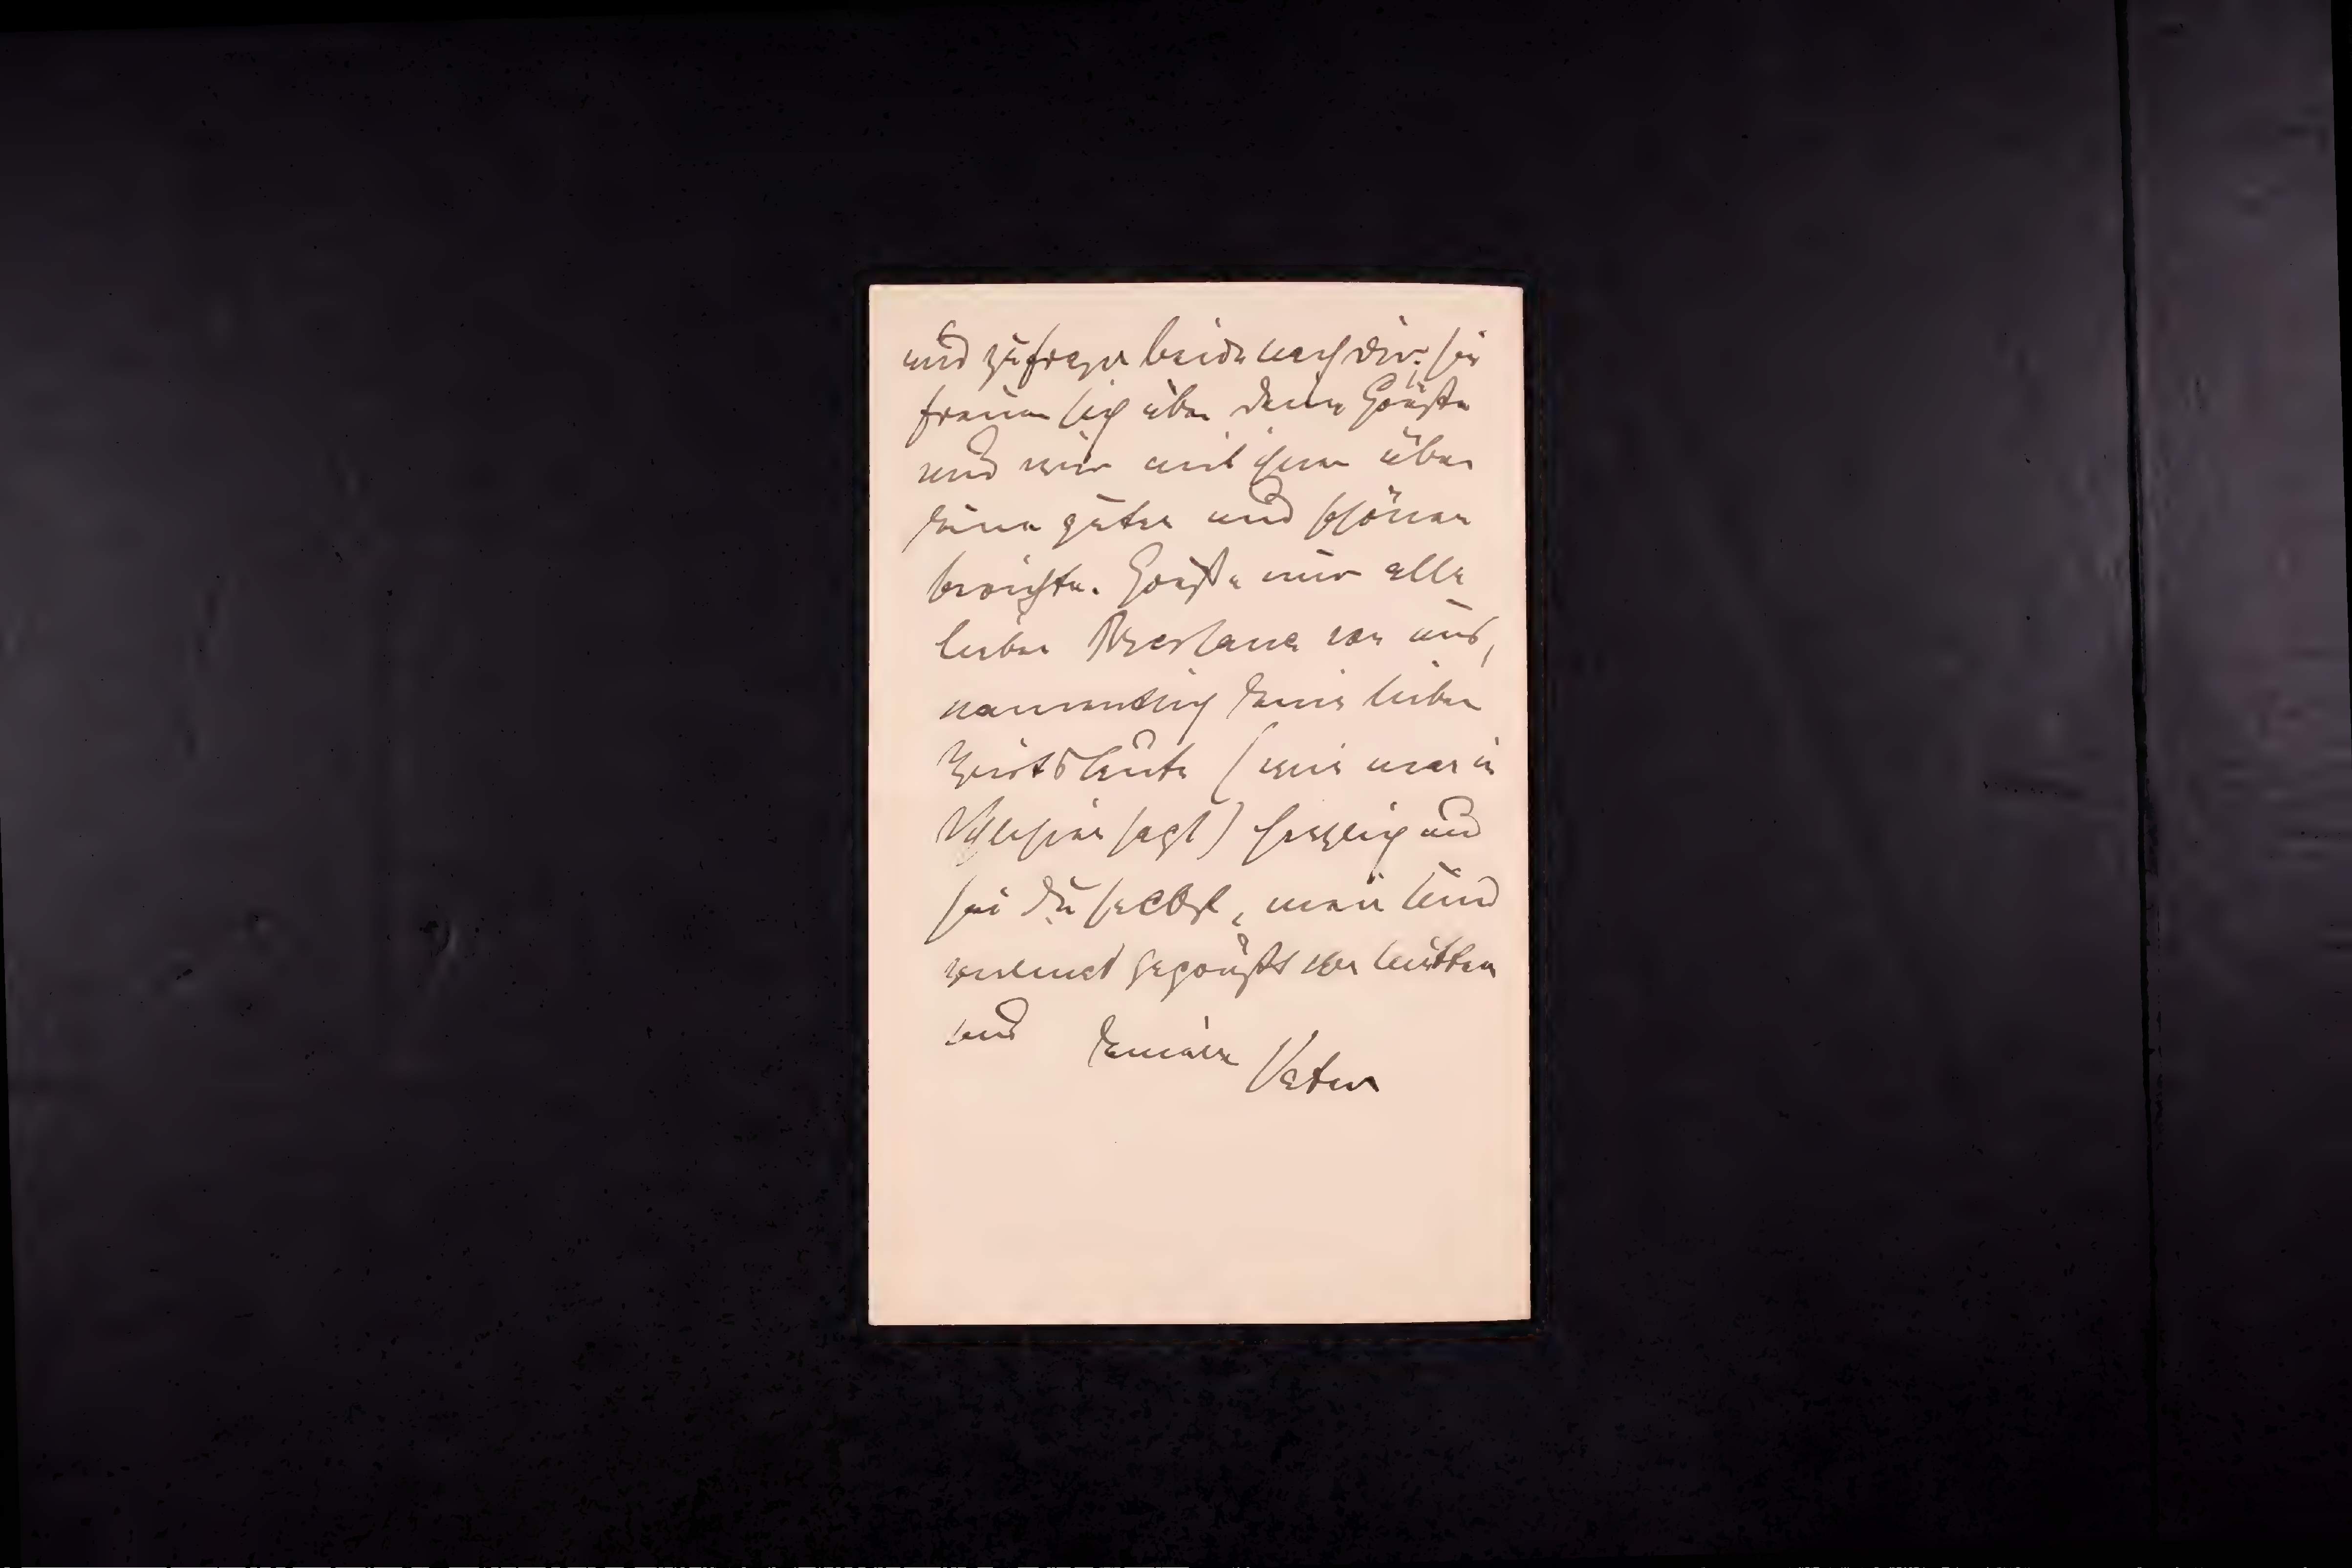 und zu fragen beide nach dir; sie
freuen sich über deine Grüße
und wir mit ihnen über
deine guten und schönen
berichte. Grüße mir alle
lieben von uns,
namentlich deine lieben
Wirtsleute (wie man in
Schlesien sagt) herzlich und
sei du selbst, mein Kind
gegrüßt von Mutter
und deinem Vater